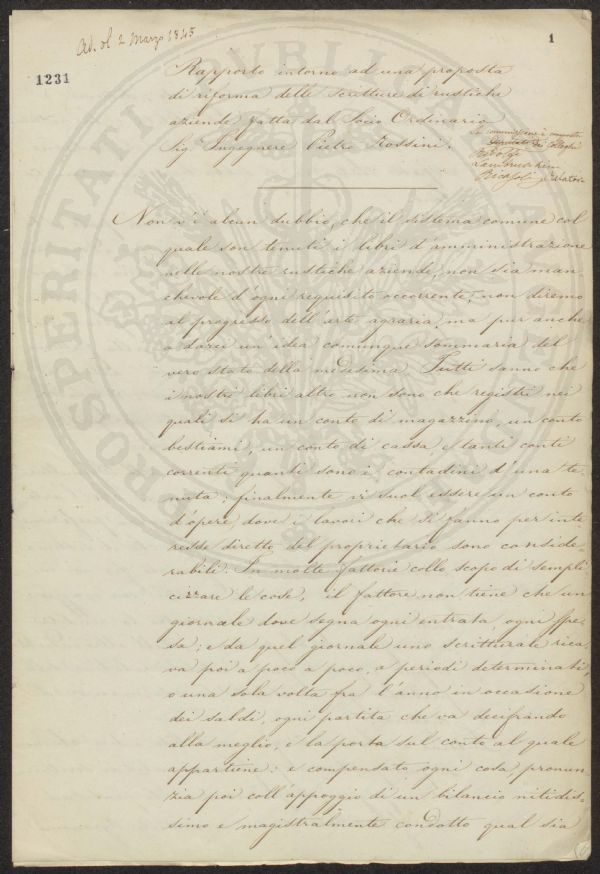 Ad. ol 2 Marzo 1845
1
1231
Rapporto intorno ad una proposta
di riforma delle scritture di rustiche
aziende fatta dal Socio Ordinario
Sig. Ingegnere Pietro Rossini.
La commissione è composta
Ridolfi
Lambruschini
Ricasoli relatore
Non v'è alcun dubbio, che il sistema comune col
quale son tenuti i libri d'amministrazione
nelle nostre rustiche aziende, non sia man
chevole d'ogni requisito occorrente, non diremo
al progresso dell'arte agraria, ma pur anche
a darci un'idea comunque sommaria del
vero stato della medesima. Tutti sanno che
i nostri libri altro non sono che registri nei
quali si ha un conto di magazzino, un conto
bestiami, un conto di cassa e tanti conti
correnti quanti sono i contadini d'una te
nuta; finalmente vi suol essere un conto
d'opere dove i lavori che si fanno per inte
resse diretto del proprietario sono conside-
rabili. In molte fattorie collo scopo di sempli
cizzare le cose, il fattore non tiene che un
giornale dove segna ogni entrata, ogni spe
sa; e da quel giornale uno scritturale rica
va poi a poco a poco, a periodi determinati,
o una sola volta fra l'anno in occasione
dei saldi, ogni partita che va decifrando
alla meglio, e la porta sul conto al quale
appartiene: e compensato ogni cosa, pronun
zia poi coll'appoggio di un bilancio nitidis-
simo e magistralmente condotto qual sia
PROSPERITATI PUBLICAE